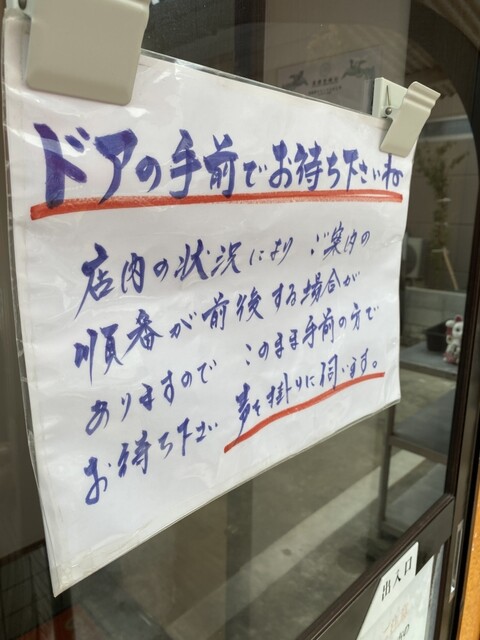 ドアの手前でお待ち下さいね
店内の状況により ご案内の
順番が前後する場合が
ありますので このまま手前の方で
お待ち下さい 声を掛けに伺います。
出入口